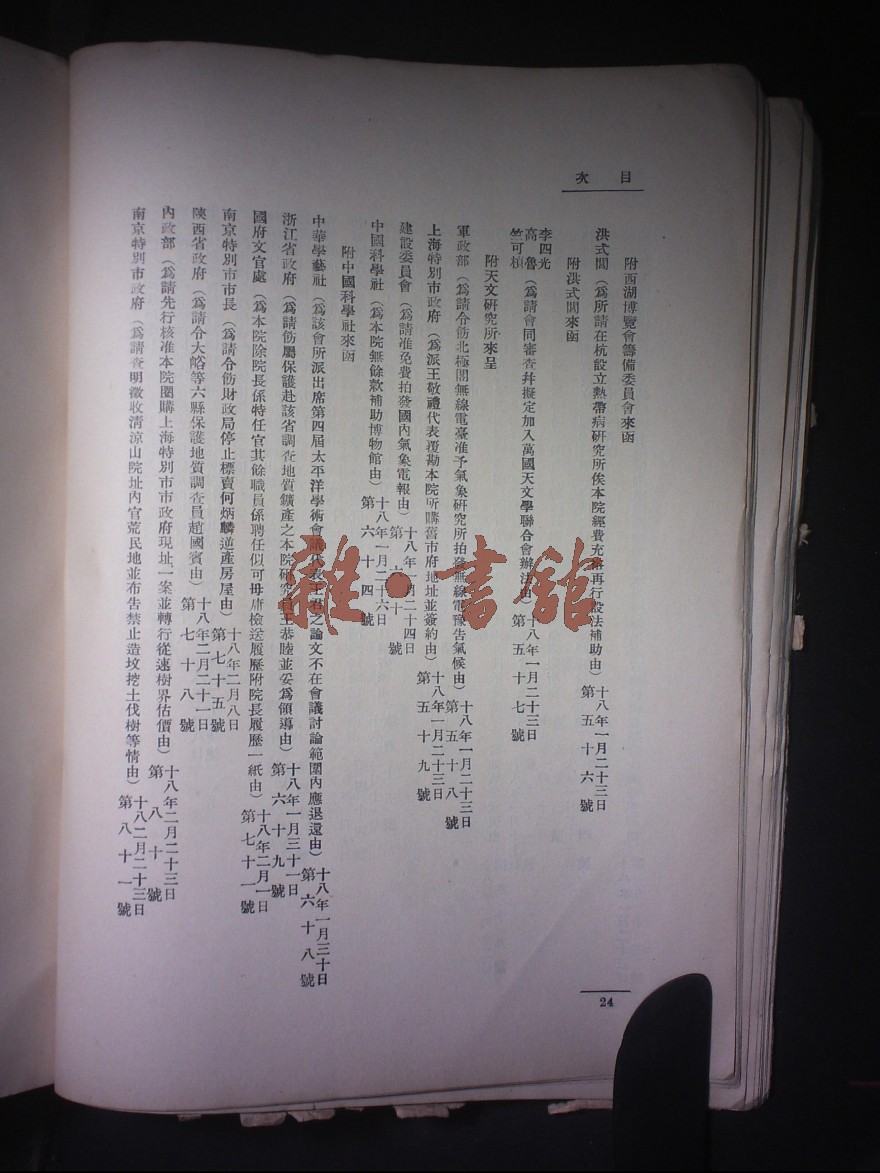 目次
附西湖博覽會籌備委員會來函
洪式閭（爲所請在杭設立熱帶病硏究所俟本院經費充裕再行設法補助由）十八年一月二十三日第五十六號
附洪式閭來函
李四光
高魯（爲請會同審查幷擬定加入萬國天文學聯合會辦法由）十八年一月二十三日第五十七號
竺可楨
附天文硏究所來呈
軍政部（爲請令飭北極閣無線電臺准予氣象硏究所拍發無線電豫告氣候由）十八年一月二十三日第五十八號
上海特別市政府（爲派王敬禮代表覆勘本院所購舊市府地址並簽約由）十八年一月二十三日第五十九號
建設委員會（爲請准免費拍發國內氣象電報由）十八年一月二十四日第六十號
中國科學社（爲本院無餘款補助博物館由）十八年一月二十六日第六十四號
附中國科學社來函
中華學藝社（爲該會所派出席第四屆太平洋學術會議代表王君之論文不在會議討論範圍內應退還由）十八年一月三十日第六十八號
浙江省政府（爲請飭屬保護赴該省調查地質鑛產之本院硏究員王恭睦並妥爲領導由）十八年一月三十一日第六十九號
國府文官處（爲本院除院長係特任官其餘職員係聘任似可毋庸檢送履歷附院長履歷一紙由）十八年二月一日第七十一號
南京特別市市長（爲請令飭財政局停止標賣何炳麟逆產房屋由）十八年二月八日第七十五號
陝西省政府（爲請令大峪等六縣保護地質調查員趙國賓由）十八年二月二十一日第七十八號
內政部（爲請先行核准本院圈購上海特別市市政府現址一案並轉行從速樹界估價由）十八年二月二十三日第八十號
南京特別市政府（爲請查明徵收淸涼山院址內官荒民地並布告禁止造墳挖土伐樹等情由）十八二月二十三日第八十一號
24
雜·書館